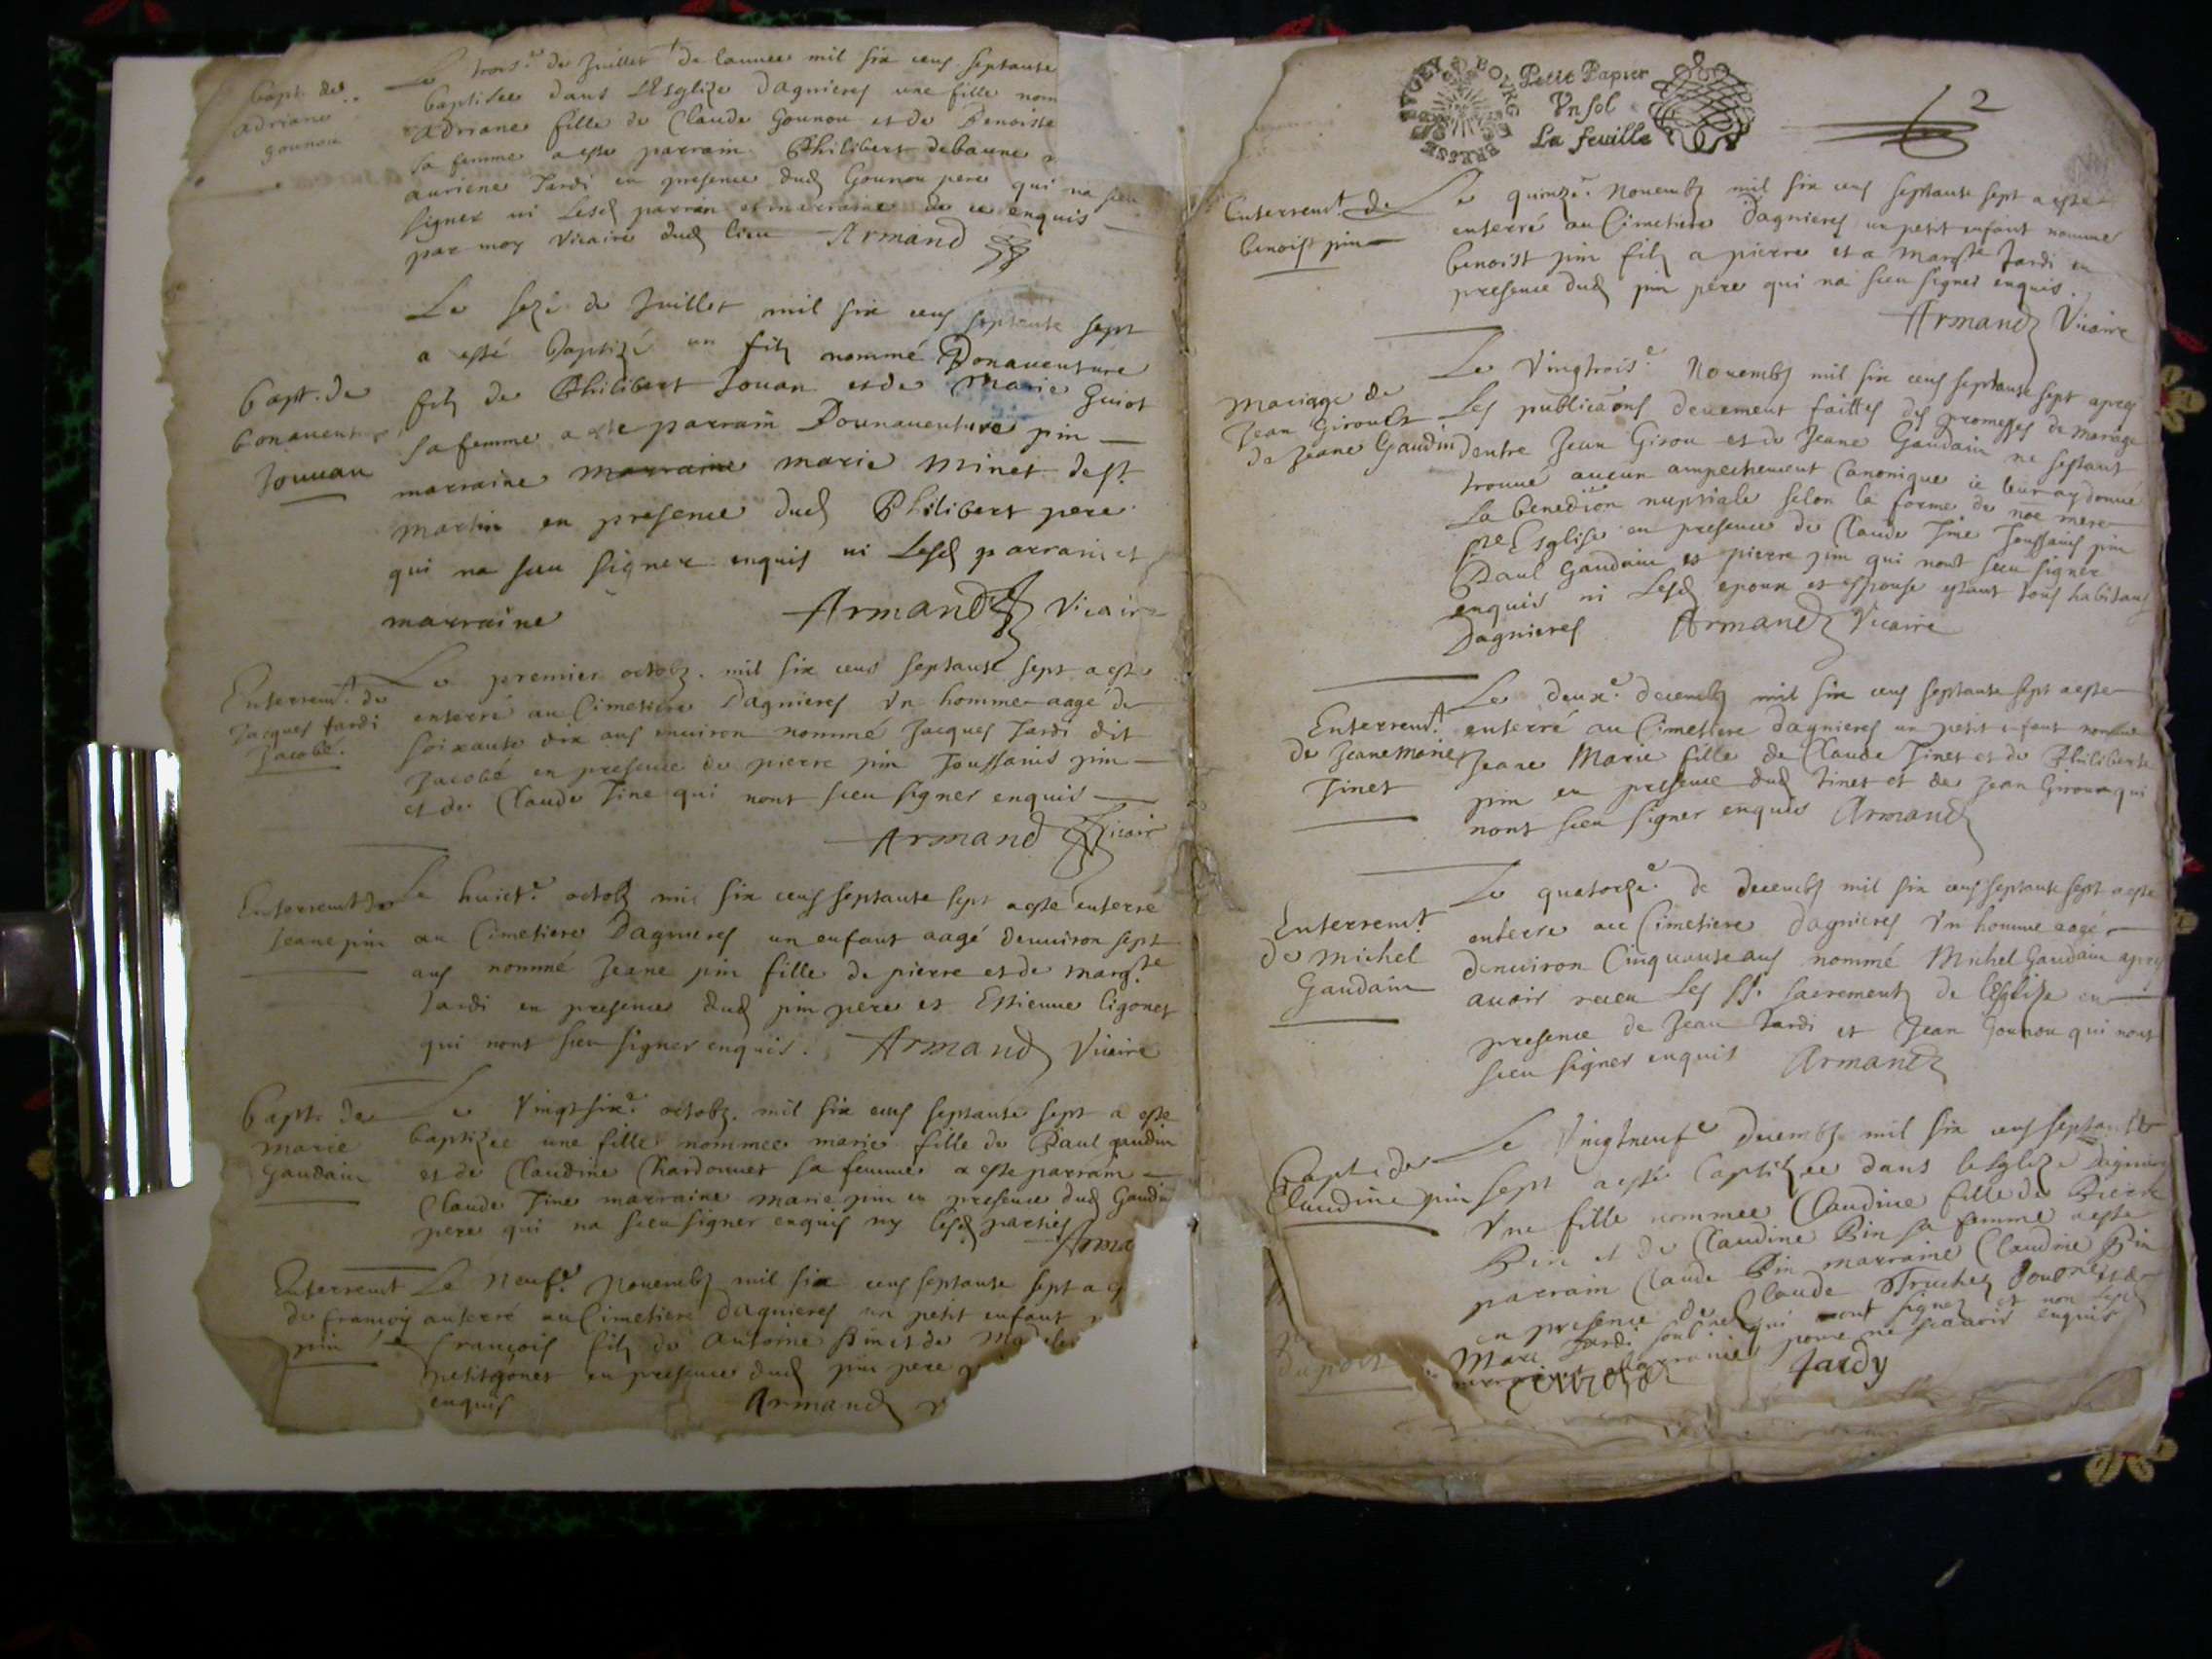 Bapt. de
adriane
gounou
Le trois.e de Juillet de lannee mil six cens septante
baptisee dans LEsglize dagnieres une fille nom
adriane fille de Claude Gounou et de Benoiste
sa femme a este parrain Philibert debaune
auriene Tardi en presence dud Gounou pere qui na sceu
signer ni Lesd parrain et marraine de ce enquis
par moy Vicaire dud lieu Armand
Bapt. de
bonaventure
Jouuan
Le seze de Juillet mil six cens septante sept
a esté Baptizé un filz nommé Bonaventure
filz de Philibert Jouan et de Marie Guiot
sa femme a este parrain Bounaventure pin
marraine marraine marie Minet de st.
martin en presence dud Philibert pere
qui na sceu signer enquis ni Lesd parrain et
marraine Armand Vicaire
Enterremt. de
Jacques tardi
Jacobé.
Le premier octobz. mil six cens septante sept a este
enterré au Cimetiere Dagnieres Vn homme aagé de
soixante dix ans environ nommé Jacques Tardi dit
Jacobé en presence de pierre pin Toussains pin
et de Claude Tine qui nont sceu signer enquis
Armand Vicair
Enterremt de
Jeane pin
Le huict.e octobz mil six cens septante sept a este enterré
au Cimetiere Dagnieres un enfant aagé denuiron sept
ans nommé Jeane pin fille de pierre et de margte
tardi en presence dud pin pere et Estienne ligonet
qui nont sceu signer enquis. Armand Vicaire
Bapt. de
marie
gaudain
Le Vingtsix.e octobz. mil six cens septante sept a este
baptizee une fille nommee marie fille de Paul gaudin
et de Claudine Chardonnet sa femme a este parrain
Claude Tine marraine marie pin en presence dud Gaudin
pere qui na sceu signer enquis ny lesd parties
Arma
Enterremt
de françois
pin
Le Neuf.e Novembz mil six cens septante sept a
enterré au Cimetiere dagnieres un petit enfant
françois filz de antoine pin et de Madele
petitgonet en presence dud pin pere
enquis Armand
BOVRG BRESSE BVGEY
Petit Papier
Vn sol
La feuille
2
Enterremt. de
benoist pin
Le quinze.e Novembz mil six cens septante sept a este
enterré au Cimetiere dagnieres un petit enfant nomme
benoist pin filz a pierre et a Margte Tardi en
presence dud pin pere qui na sceu signer enquis.
Armand Vicaire
Mariage de
Jean Girou et
de Jeane Gaudin
Le Vingtrois.e Novembz mil six cens septante sept apres
Les publicaons deuement faittes des promesses de mariage
dentre Jean Girou et de Jeane Gaudain ne sestant
trouué aucun ampechement Canonique ie leur ay donné
La benediōn nuptiale selon la forme de noe mere
ste Esglise en presence de Claude Tine Toussains pin
Paul Gaudain et pierre pin qui nont sceu signer
enquis ni Lesd epoux et espouse estant tous habitans
Dagnieres Armand Vicaire
Enterremt.
de Jeane Marie
Tinet
Le deux.e decembz mil six cens septante sept a este
enterré au Cimetiere dagnieres un petit enfant nomme
Jeane Marie fille de Claude Tinet et de Philiberte
pin en presence dud tinet et de Jean Girou qui
nont sceu signer enquis Armand
Enterremt.
de michel
Gaudain
Le quatorze.e de decembz mil six cens septante sept a este
enterre au Cimetiere dagnieres Vn homme aagé
denuiron Cinquante ans nommé Michel Gaudain apres
auoir receu Les SS. sacrements de lEsglize en
presence de Jean tardi et Jean Gounou qui nont
sceu signer enquis Armand
Bapt. de
Claudine pin
Le Vingtneuf.e decembz mil six cens septante
sept a esté baptizee dans lesglize dagnieres
Vne fille nommee Claudine fille de Pierre
Pin et de Claudine Pin sa femme a este
parrain Claude Pin marraine Claudine Pin
en presence de Claude Truchet
Marc Tardi soubnes qui ont signez et non Lesd
parrain et marraine pour ne scauoir enquis
Tardy